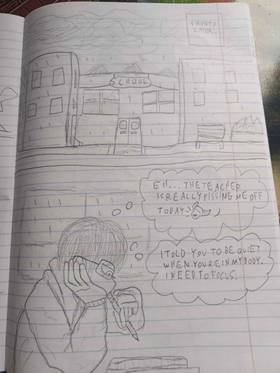 SCHOOL
EH... THE TEACHER
IS REALLY PISSING ME OFF
TODAY
I TOLD YOU TO BE QUIET
WHEN YOURE IN MY BODY.
I NEED TO FOCUS.